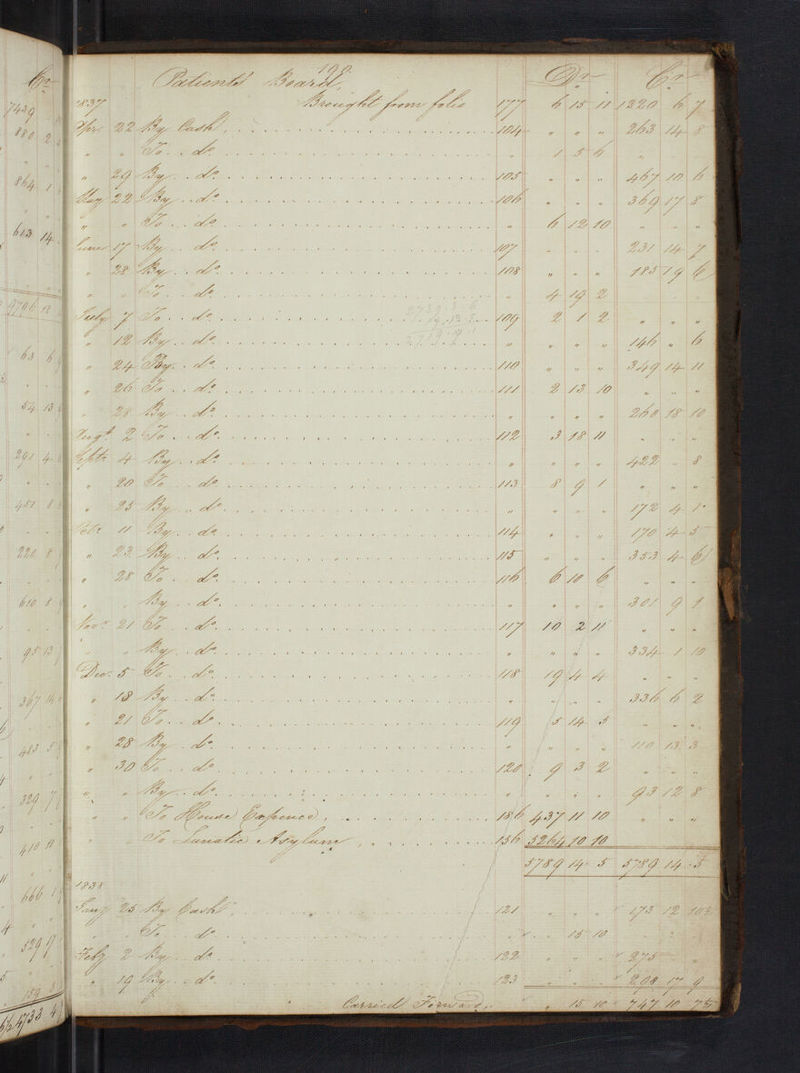 190
Patients Board, Dr Cr
1837 Brought from folio 177 6 15 11 1220 6 7
Apr 22 By Cash 104 " " " 263 14 8
" " To do " 1 5 6 "
" 29 By do 105 " " " 467 10 6
May 22 By do 106 " " " 369 17 8
" " To do " 6 12 10 " " "
June 17 By do 107 " " " 231 14 7
" 28 By do 108 " " " 185 19 6
" " To do " 4 19 2
July 7 To do 109 2 1 2 " " "
" 12 By do " " " " 146 " 6
" 24 By do 110 " " " 349 14 11
" 26 To do 111 2 13 10 " " "
" 28 By do " " " " 260 18 10
Augt 2 To do 112 3 18 11 " " "
Septr 4 By do " " " " 422 " 8
" 20 To do 113 8 9 1 " " "
" 25 By do " " " " 172 4 1
11 By do 114 " " " 170 4 5
" 23 By do 115 " " " 353 4 6
" 28 To do 116 6 10 6 " " "
" " By do " " " " 301 9 1
Novr 21 To do 117 10 2 11 " " "
" " By do " " " " 334 1 10
Decr 5 To do 118 19 4 4 " " "
" 18 By do " " " " 336 6 2
" 21 To do 119 5 14 5 " " "
" 28 By do " " " " 110 13 3
" 30 To do 120 9 3 2 " " "
" " By do " " " " 93 12 8
" " To House Expence 186 437 11 10 " " "
" " To Lunatic Asylum 156 5264 10 10
5789 14 5 5789 14 5
1838
Jany 25 By Cash 121 " " " 173 12 10½
To do " " 15 10
Feby 2 By do 122 " " " 275 " "
" 19 By do 123 " " " 298 17 9
Carried Forward " " 15 10 747 10 7½